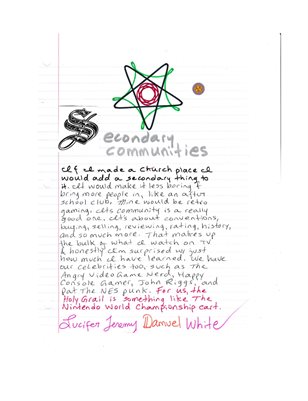 Secondary
communities
If I made a Church place I
would add a secondary thing to
it. I'd would make it less boring &
bring more people in, like an after
school club. Mine would be retro
gaming. It's community is a really
good one. It's about conventions,
buying, selling, reviewing, rating, history,
and so much more. That makes up
the bulk of what I watch on TV
& honestly I'm surprised at just
how much I have learned. We have
our celebrities too, such as The
Angry Video Game Nerd, Happy
Console Gamer, John Riggs, and
Pat The NES punk. For us, the
Holy Grail is something like The
Nintendo World Championship cart.
Lucifer Jeremy Damuel White